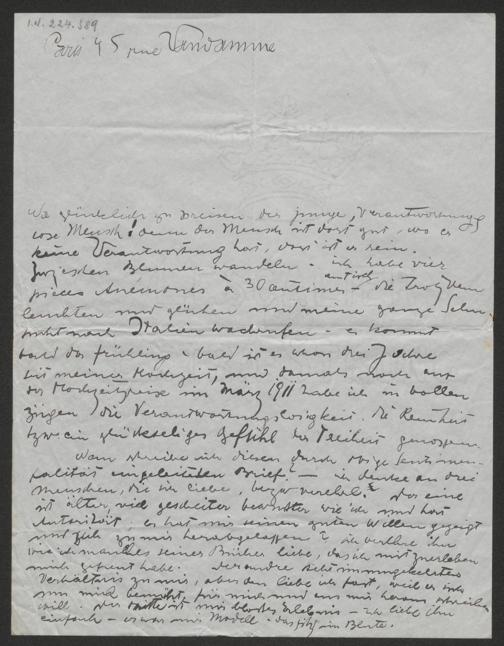 I.N. 224.589
Paris 45 rue Vandamme
Wie glücklich zu preisen der junge, Verantwortungs
lose Mensch! denn der Mensch ist dort gut, wo er
keine Verantwortung hat, dort ist er rein.
Zwischen Blumen wandeln - ich habe vier
antik
pieces Anemones à 30 centimes - die trotzdem
leuchten und glühen und meine ganze Sehn
sucht nach Italien wachrufen - es kommt
bald der Frühling - bald ist es schon drei Jahre
seit meiner Hochzeit, und damals noch auf
der Hochzeitsreise im März 1911 habe ich in vollen
Zügen die Verantwortungslosigkeit, die Reinheit
bzw ein glückseliges Gefühl der Freiheit genossen.
Wem schreibe ich diesen durch obige Sentimen-
talität eingeleiteten Brief? - ich denke an drei
Menschen, die ich liebe, bezw verehre? Der eine
ist älter, viel gescheiter bewusster wie ich und hat
Autorität, er hat mir seinen guten Willen gezeigt
und sich zu mir herabgelassen? ich verehre ihn
wie ich manches seiner Bücher liebe, das ich mit
mich gefreut habe. Der andere steht im umgekehrten
Verhältnis zu mir, aber den liebe ich fast, weil er sich
um mich bemüht, für mich und aus mir heraus schreiben
will. Der dritte ist mir blosses Erlebnis - ich liebe ihn
einfach - es war mir Modell - das sitzt im Blute.